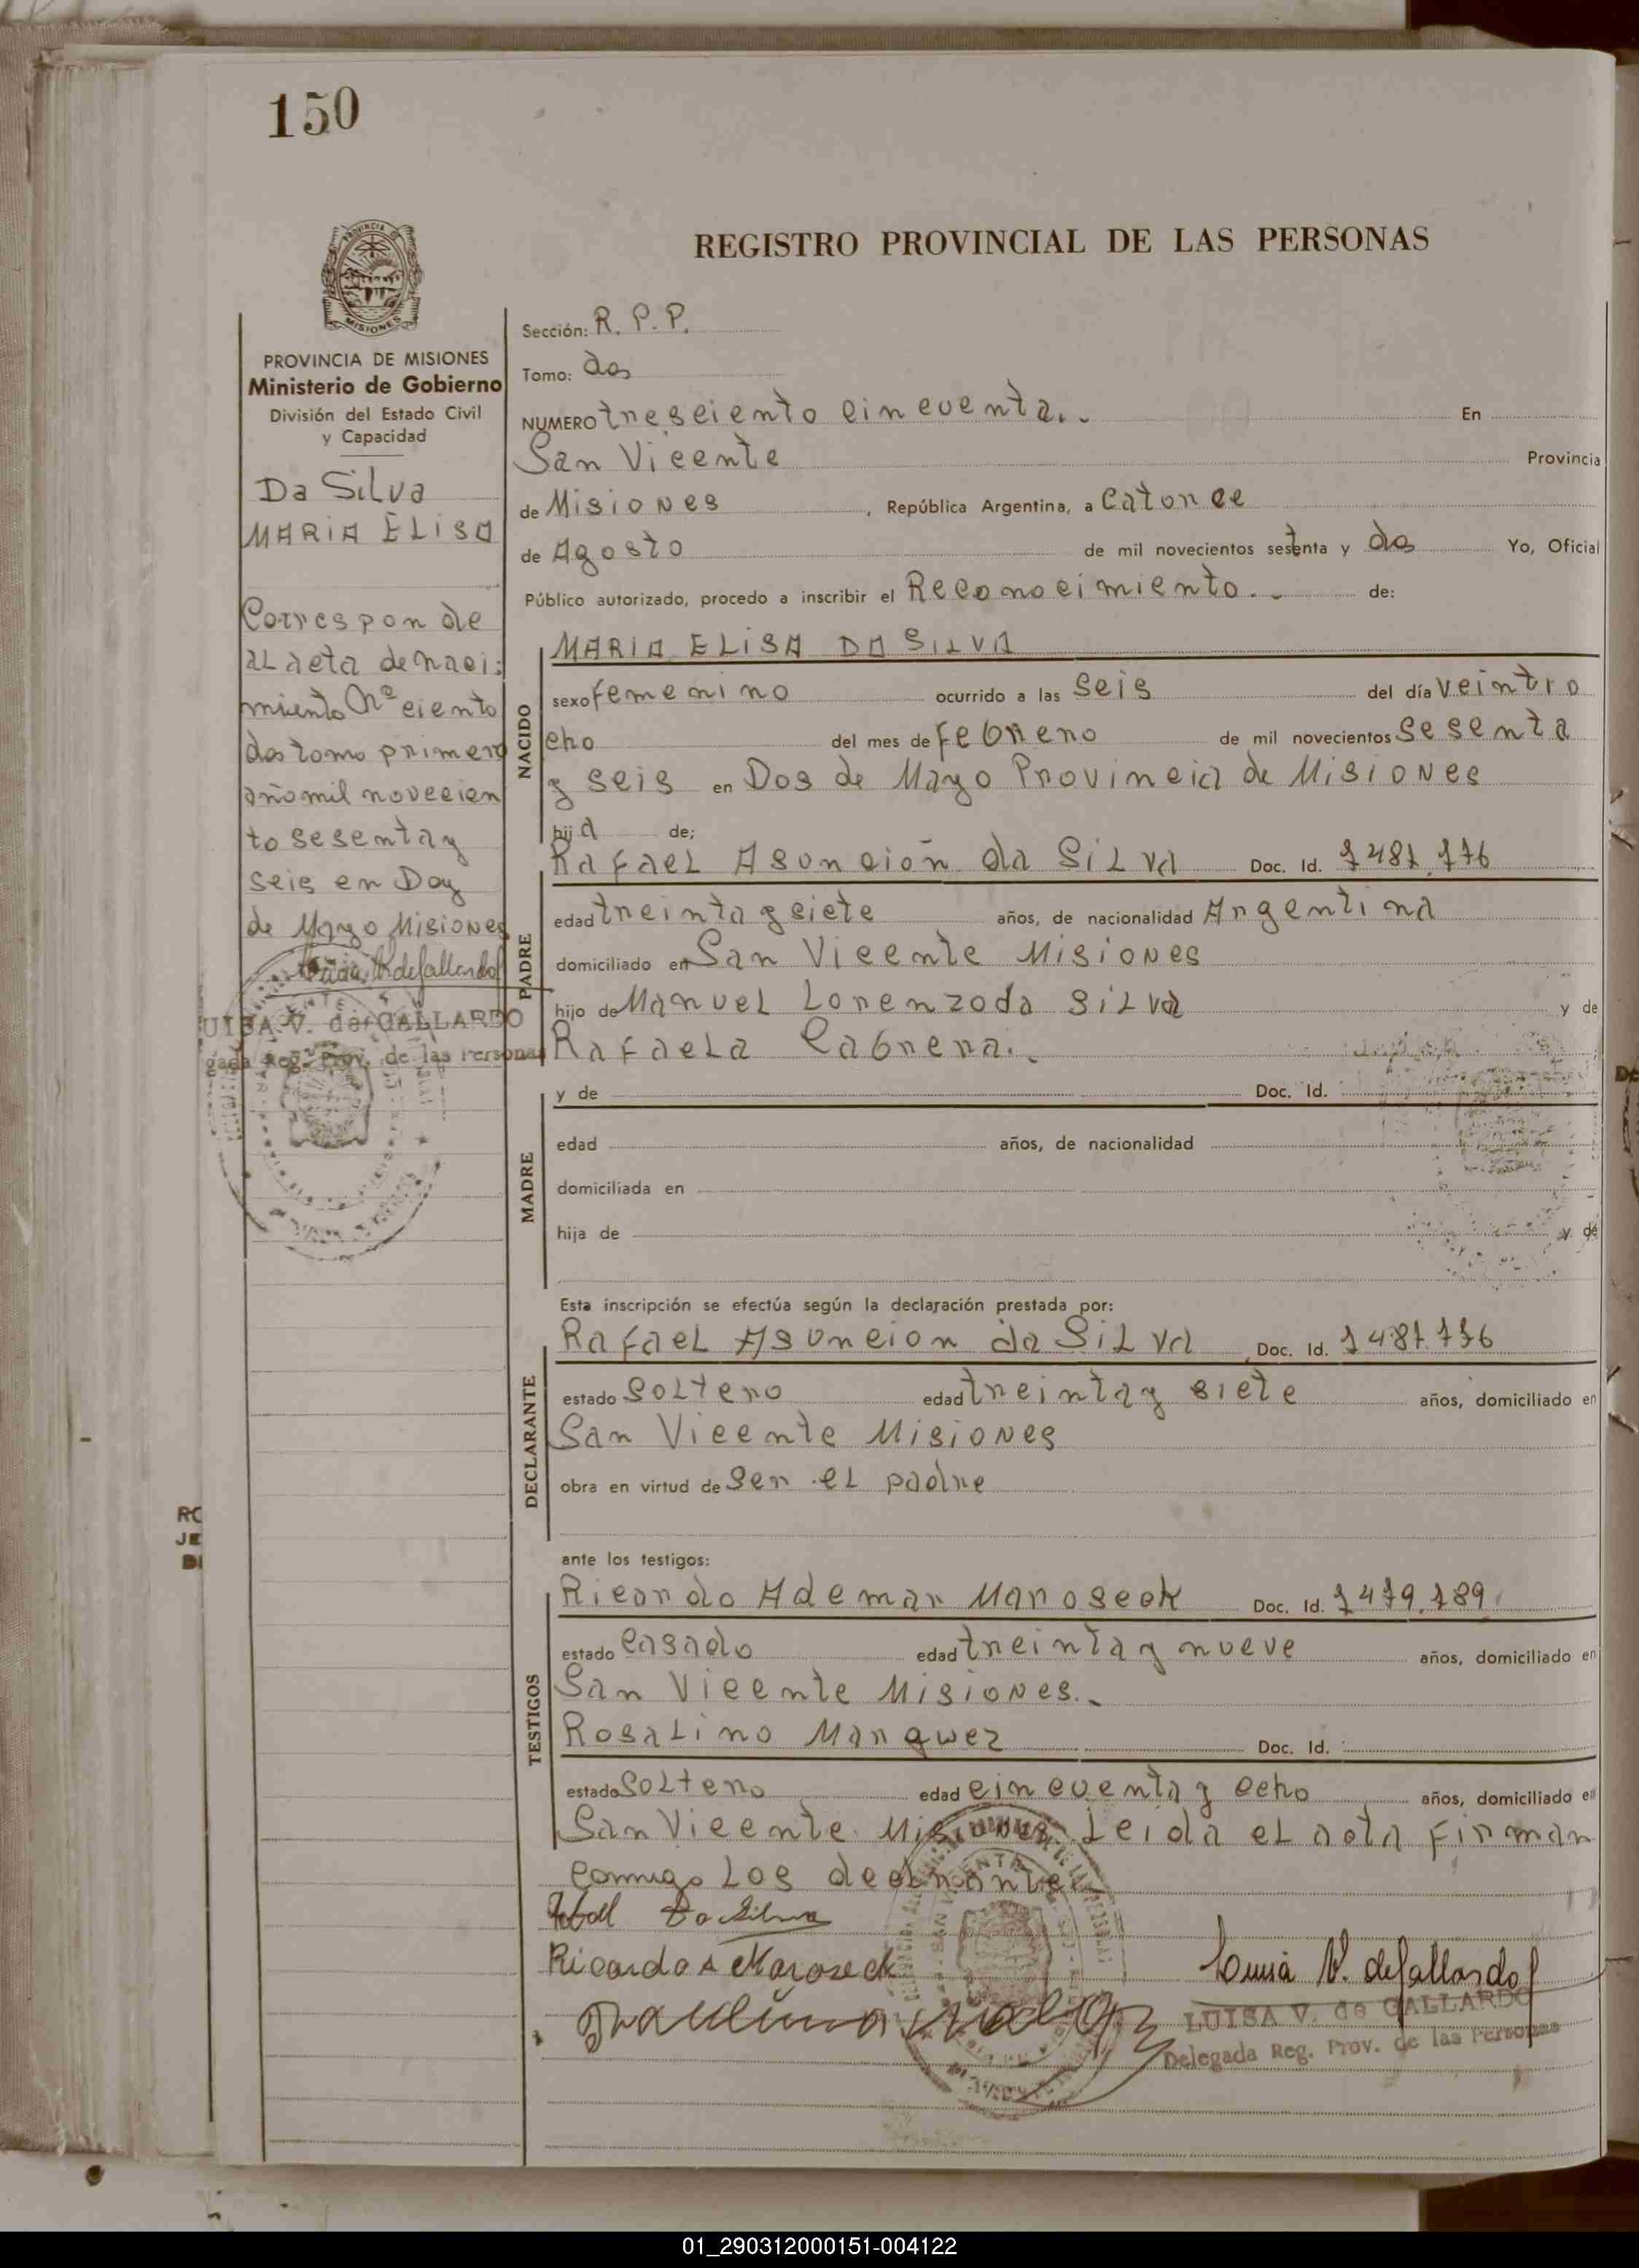 150
REGISTRO PROVINCIAL DE LAS PERSONAS
PROVINCIA DE MISIONES
Ministerio de Gobierno
División del Estado Civil
y Capacidad
Da Silva
MARIA ELISA
Correspon de
al acta de naci:
miento Nº ciento
dos tomo primero
año mil novecien
to sesenta y
seis en Dos
de Mayo Misiones
Luisa V. de Gallardo
UISA V. de GALLARDO
gada Reg. Prov. de las Personas
Sección: R. P. P.
Tomo: dos
NUMERO tresciento cincuenta.. En
San Vicente Provincia
de Misiones, República Argentina, a catorce
de Agosto de mil novecientos setenta y dos Yo, Oficial
Público autorizado, procedo a inscribir el Reconocimiento.. de:
NACIDO
MARIA ELISA DA SILVA
sexo femenino ocurrido a las seis del día veintio
cho del mes de febrero de mil novecientos sesenta
y seis en Dos de Mayo Provincia de Misiones
hija de;
PADRE
Rafael Asunción da Silva Doc. Id.
edad treinta y siete años, de nacionalidad Argentina
domiciliado en San Vicente Misiones
hijo de Manuel Lorenzo da Silva y de
Rafaela Cabrera..
MADRE
y de Doc. Id.
edad años, de nacionalidad
domiciliada en
hija de y de
Esta inscripción se efectúa según la declaración prestada por:
DECLARANTE
Rafael Asuncion da Silva Doc. Id.
estado Soltero edad treinta y siete años, domiciliado en
San Vicente Misiones
obra en virtud de ser el padre
ante los testigos:
TESTIGOS
Ricardo Ademar Maroseck Doc. Id.
estado casado edad treinta y nueve años, domiciliado en
San Vicente Misiones..
Rosalino Marquez Doc. Id.
estado Soltero edad cincuenta y ocho años, domiciliado en
San Vicente Misiones Leida el acta firman
conmigo los
Da Silva
Ricardo A Maroseck
Luisa V. de Gallardo
LUISA V. de GALLARDO
Delegada Reg. Prov. de las Personas
RO
JE
DE
01_290312000151-004122